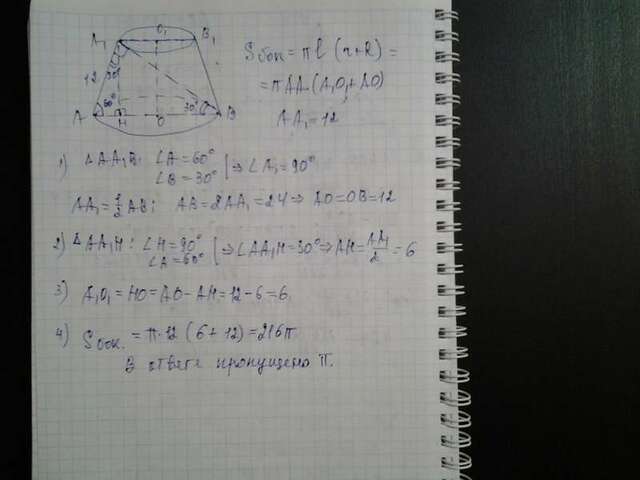 A₁ O₁ B₁
12 30°
60° 30°
A H O B
Sбок = πl (r+R) =
= πAA₁(A₁O₁+AO)
AA₁ = 12
1) △AA₁B: ∠A = 60°
∠B = 30° | ⇒ ∠A₁ = 90°
AA₁ = ½ AB; AB = 2AA₁ = 24 ⇒ AO = OB = 12
2) △AA₁H: ∠H = 90°
∠A = 60° | ⇒ ∠AA₁H = 30° ⇒ AH = AA₁/2 = 6
3) A₁O₁ = HO = AO - AH = 12 - 6 = 6
4) Sбок. = π·12 (6 + 12) = 216π
В ответе пропущено π.